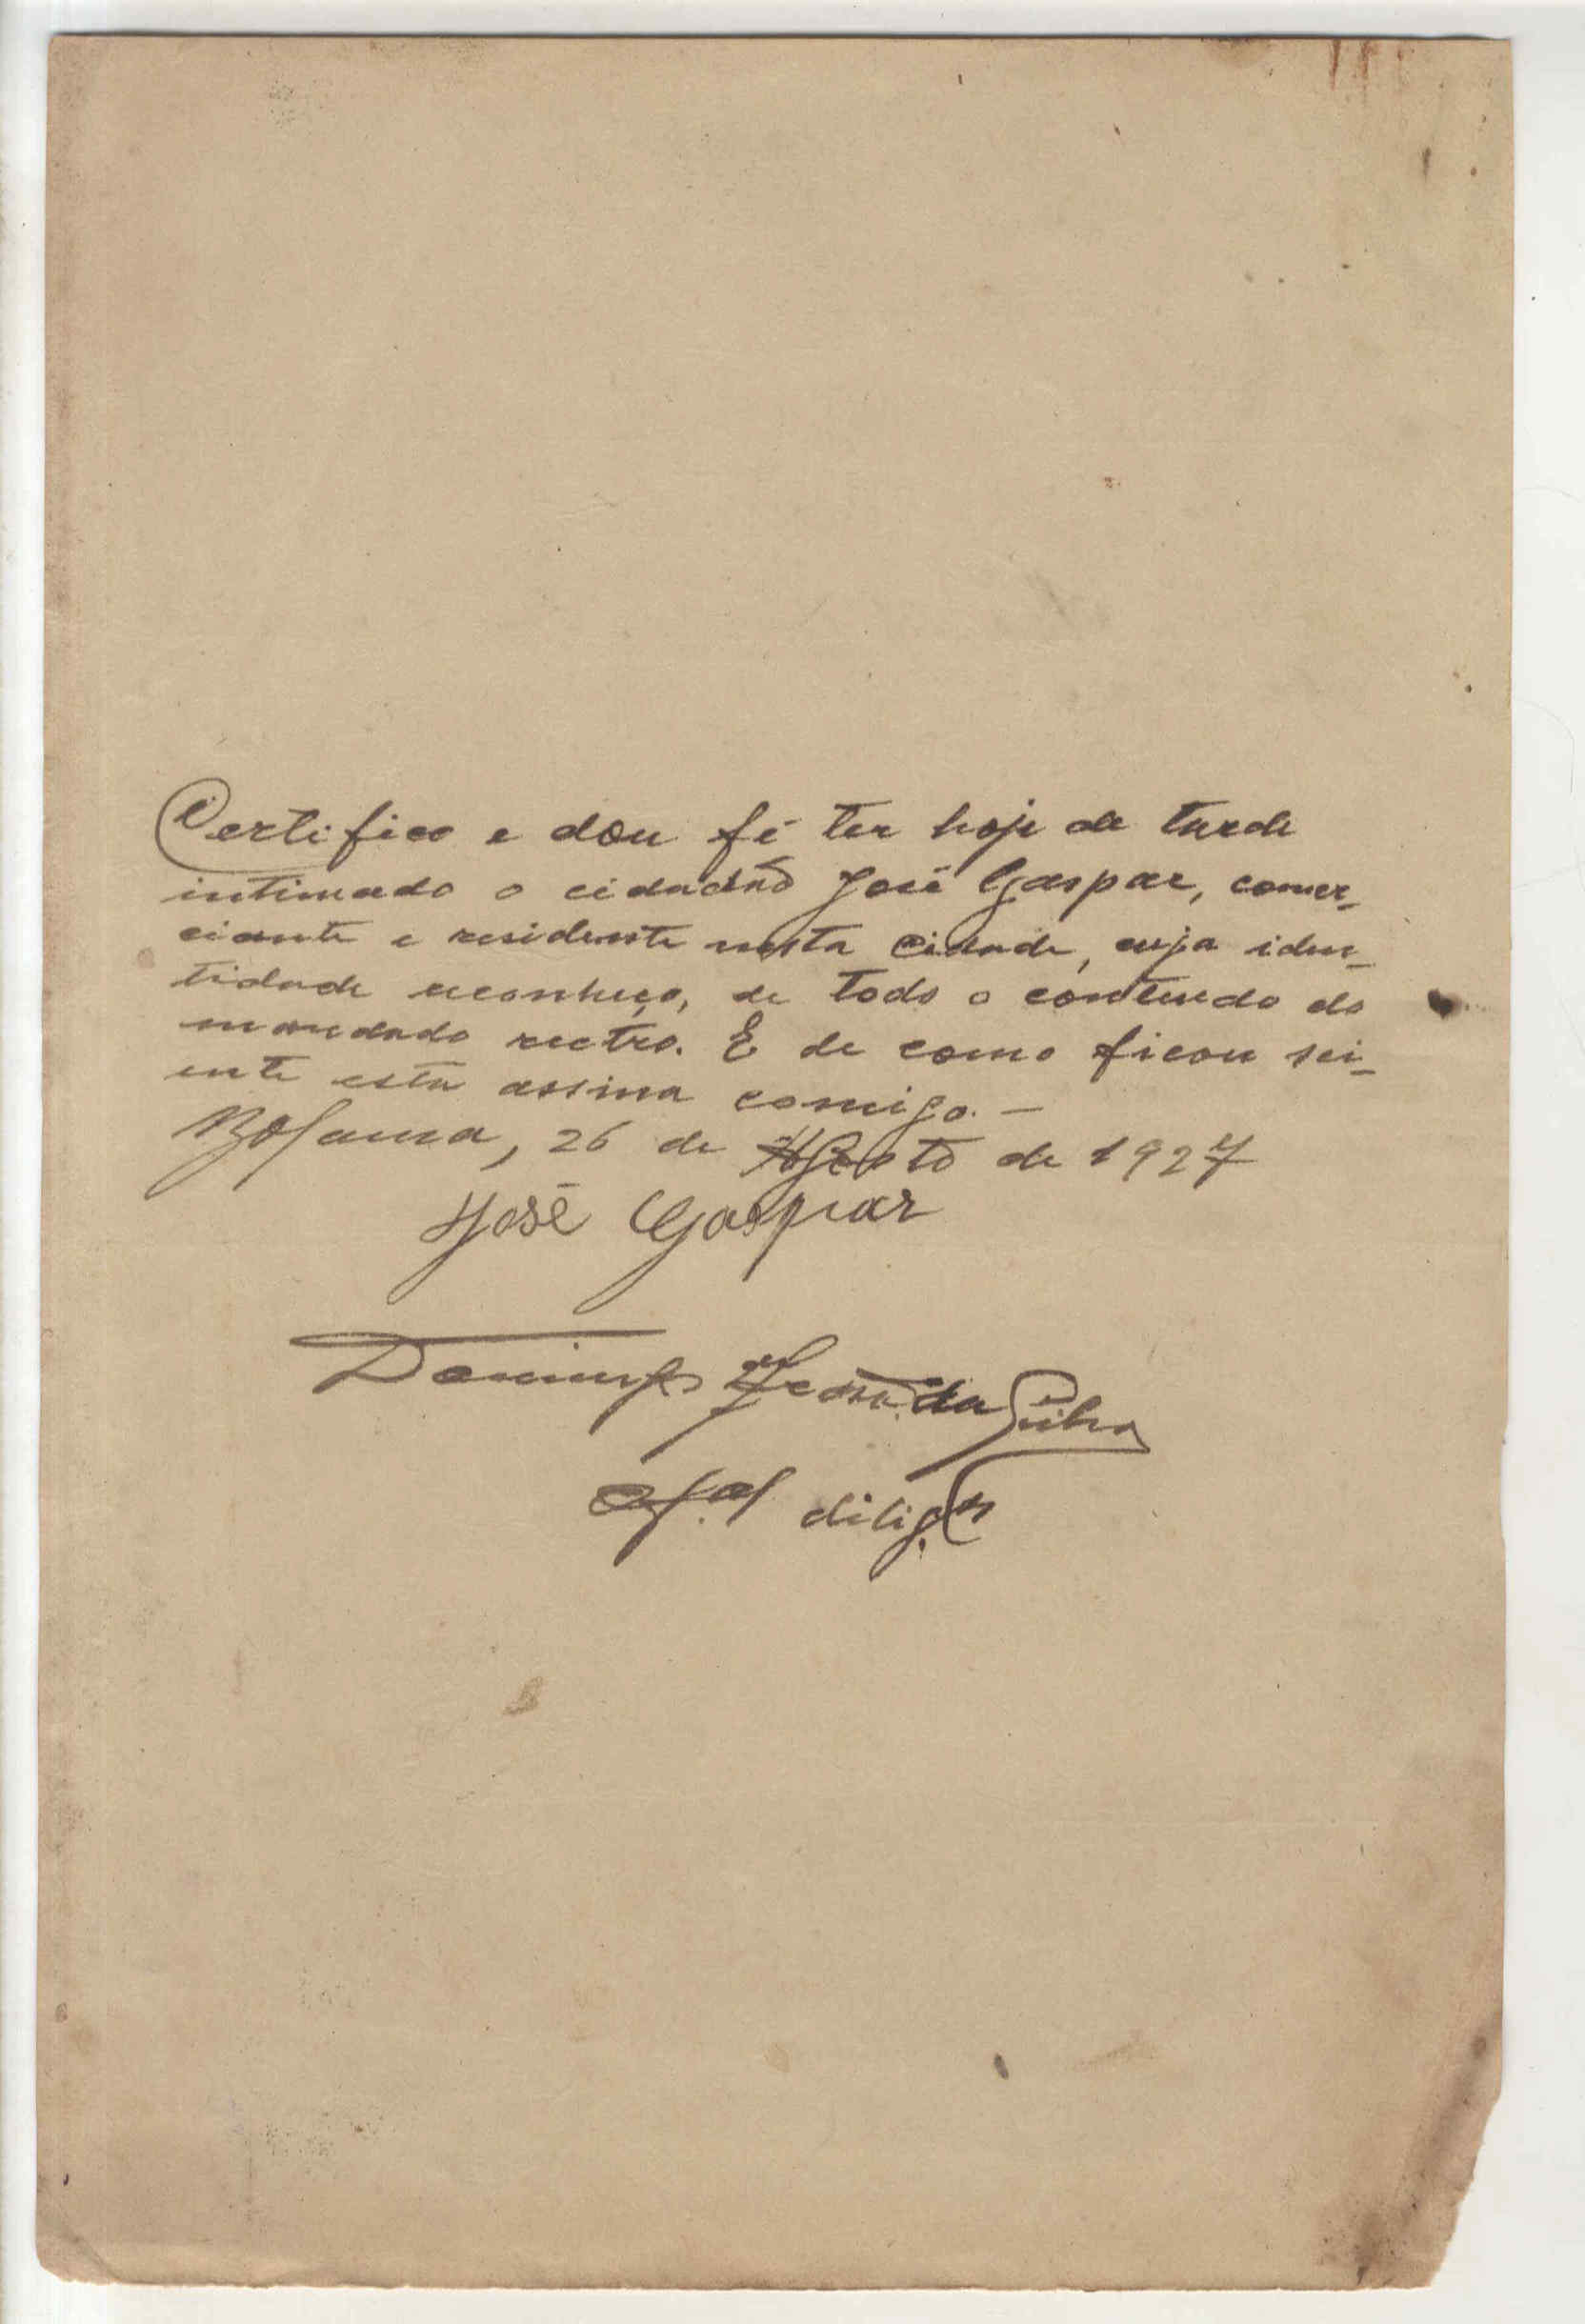 Certifico e dou fé ter hoje de tarde
intimado o cidadão José Gaspar, comer-
ciante e residente nesta cidade, cuja iden-
tidade reconheço, de todo o conteudo do
mandado rectro. E de como ficou sci-
ente esta assina comigo. —
Bolama, 26 de Agosto de 1927
José Gaspar
Domingos da Silva
dilig.